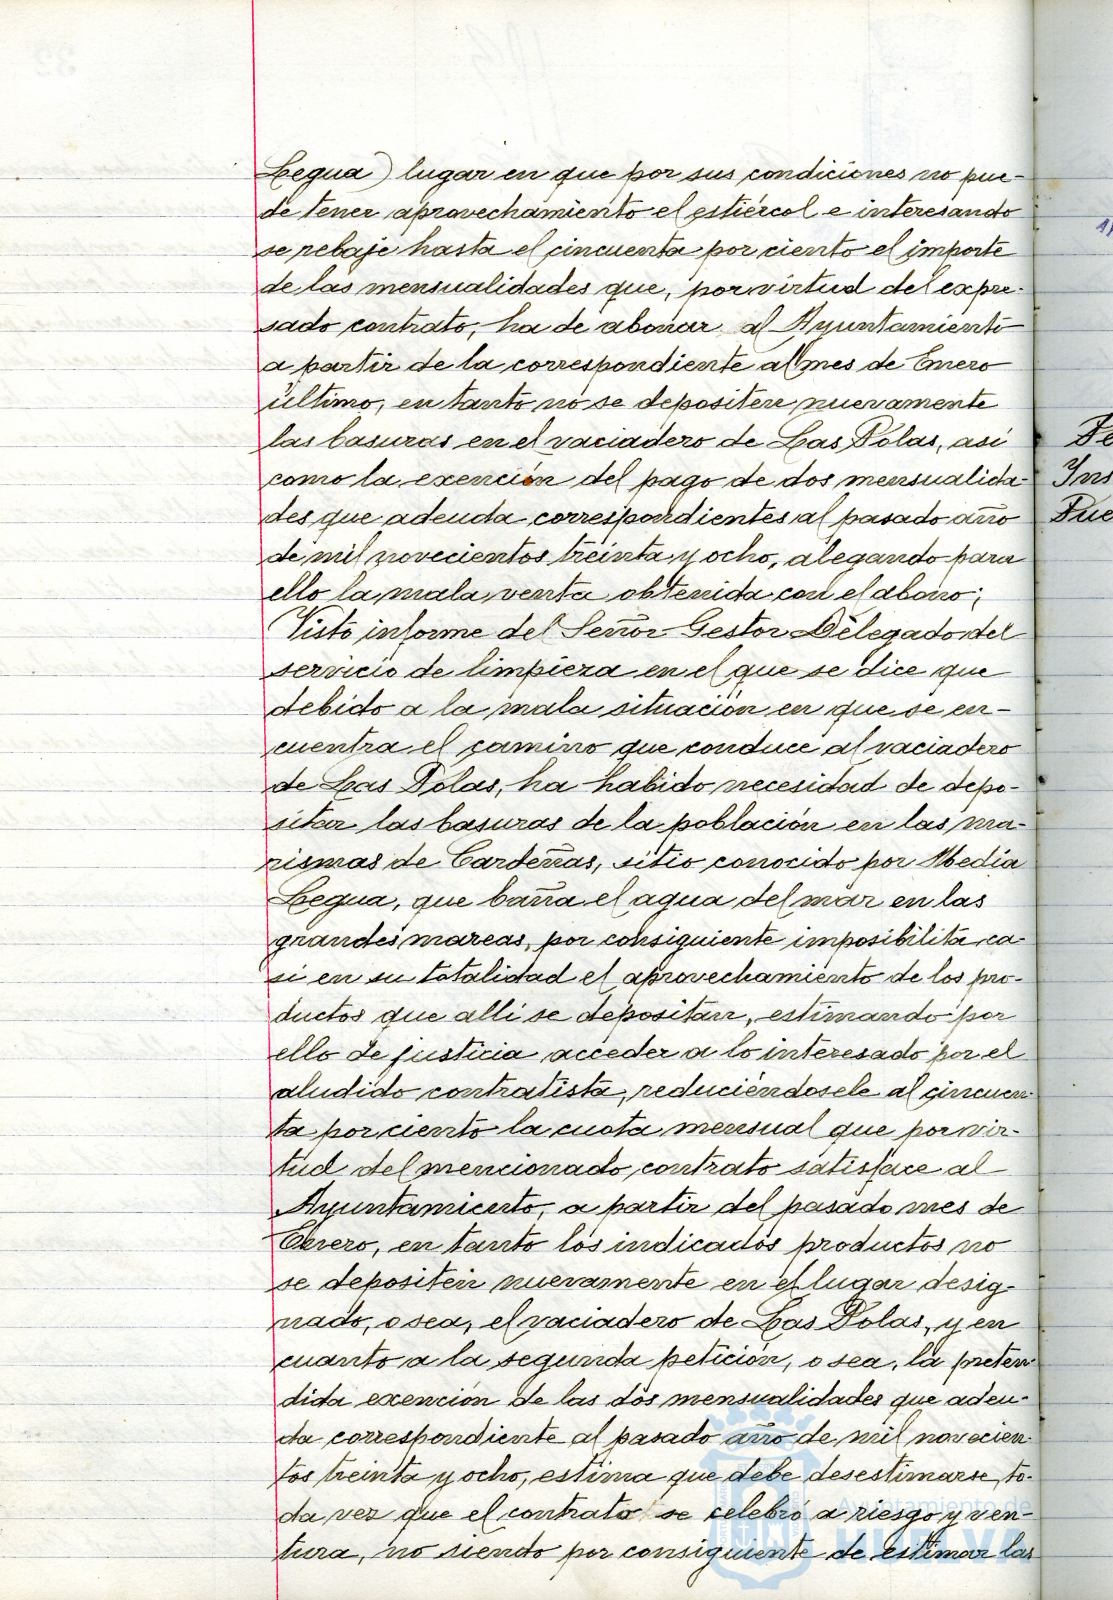 Legua) lugar en que por sus condiciones no pue-
de tener aprovechamiento el estiércol e interesando
se rebaje hasta el cincuenta por ciento el importe
de las mensualidades que, por virtud del expre-
sado contrato, ha de abonar al Ayuntamiento
a partir de la correspondiente al mes de Enero
último, en tanto no se depositen nuevamente
las basuras en el vaciadero de Las Polas, así
como la exención del pago de dos mensualida-
des que adeuda correspondientes al pasado año
de mil novecientos treinta y ocho, alegando para
ello la mala venta obtenida con el abono;
Visto informe del Señor Gestor Delegado del
servicio de limpieza en el que se dice que
debido a la mala situación en que se en-
cuentra el camino que conduce al vaciadero
de Las Polas, ha habido necesidad de depo-
sitar las basuras de la población en las ma-
rismas de Cardeñas, sitio conocido por Media
Legua, que baña el agua del mar en las
grandes mareas, por consiguiente imposibilita ca-
si en su totalidad el aprovechamiento de los pro-
ductos que allí se depositan, estimando por
ello de justicia acceder a lo interesado por el
aludido contratista, reduciéndosele al cincuen-
ta por ciento la cuota mensual que por vir-
tud del mencionado contrato satisface al
Ayuntamiento, a partir del pasado mes de
Enero, en tanto los indicados productos no
se depositen nuevamente en el lugar desig-
nado, o sea, el vaciadero de Las Polas, y en
cuanto a la segunda petición, o sea, la preten-
dida exención de las dos mensualidades que adeu-
da correspondiente al pasado año de mil novecien-
tos treinta y ocho, estima que debe desestimarse, to-
da vez que el contrato se celebró a riesgo y ven-
tura, no siendo por consiguiente de estimar las
Fe
Ins
Pue
Ayuntamiento de
HUELVA